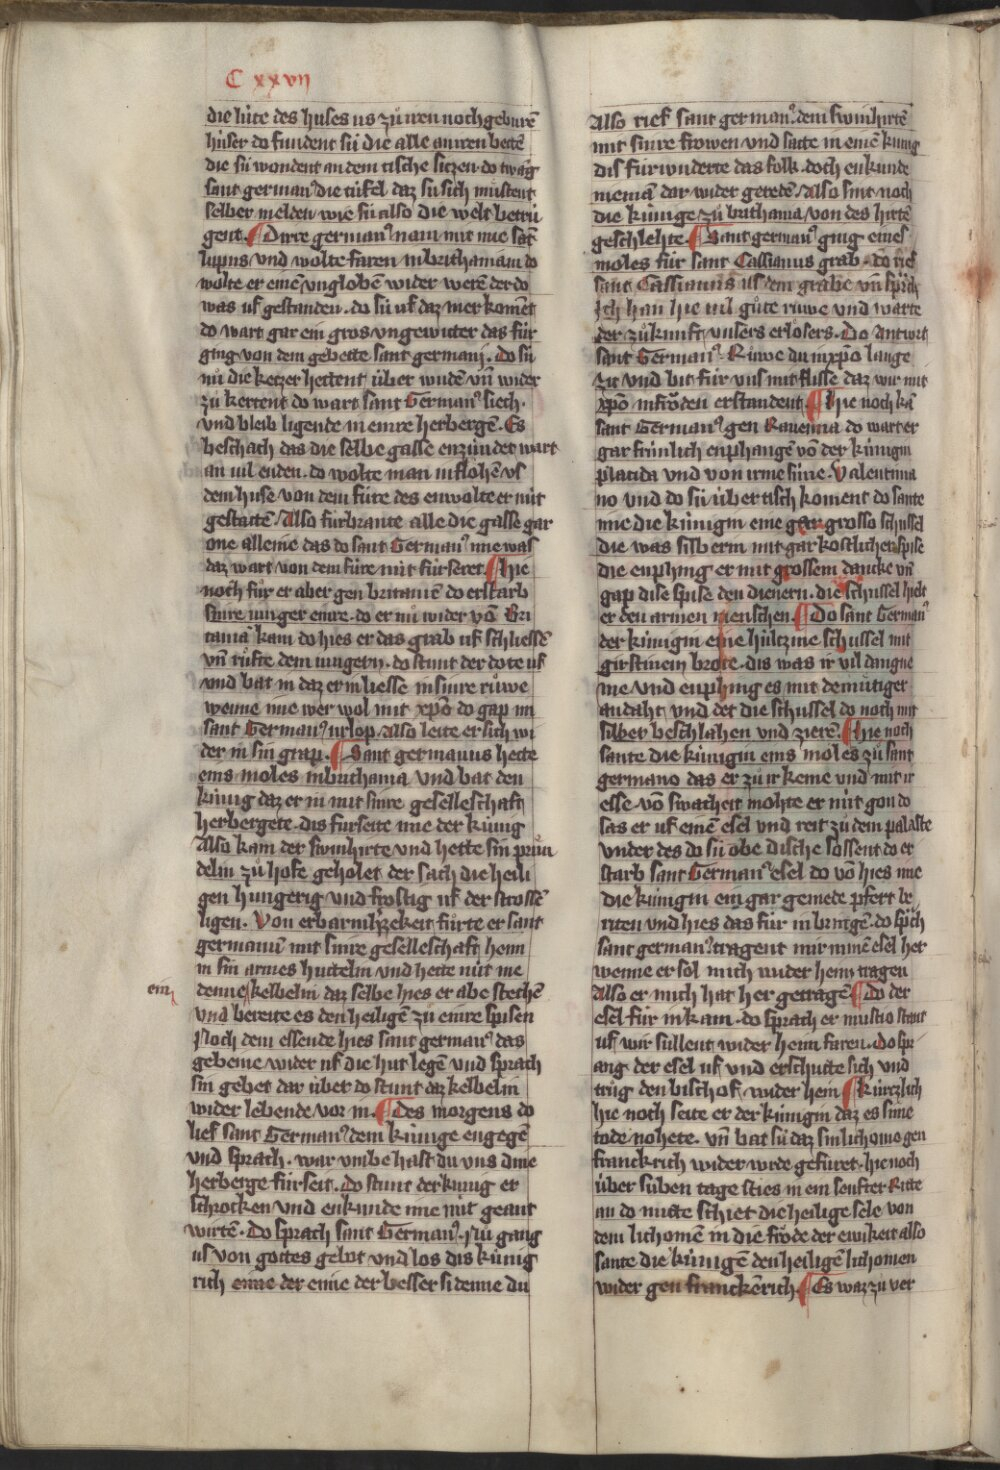 C xxvij
die lüte des huses us zuͦ iren nochgeburē
hüser do fundent sü die alle an iren bettē
die sü wondent an dem tische siczen. do twāg
sant germanꝰ die tüfel daz sü sich müstent
selber melden wie sü also die welt betrü
gent. ¶ Dirre germanꝰ nam mit ime sāt
lupus und wolte faren in brithaniam do
wolte er einē ungloben wider werē der do
was uf gestanden. do sü uf daz mer komēt
do wart gar ein gros ungewitter das für
ging von dem gebette sant germani. do sü
nü die ketzer hettent über wūdē uñ wider
zu kertent do wart sant Germanꝰ siech.
und bleib ligende in einre herbergē. Es
beschach das die selbe gasse enzündet wart
an vil enden. do wolte man in flohē us
dem huse von dem füre des enwolte er nüt
gestattē / Also fürbrante alle die gasse gar
one alleine das do sant Germanꝰ inne was
daz wart von dem füre nüt fürseret. ¶ Hie
noch fuͦr er aber gen britanie do erstarb
sinre iunger einre. do er nü wider vō Bri
tania kam do hies er das grab uf schliessē
uñ ruͤfte dem iungern. do stunt der dote uf
und bat in daz er in liesse in sinre ruͤwe
wenne ime wer wol mit xp̄o do gap im
sant Germanꝰ urlop / Also leite er sich wi
der in sin grap. ¶ Sant germanus hette
eins moles in brithania und bat den
künig daz er in mit sinre geselleschaft
herbergete. dis fürseite ime der künig
Also kam der swinhirte und hette sin pruͤn
delin zuͦ hofe geholet der sach die heili
gen hungerig und frostig uf der strossē
ligen. Von erbarmhrzekeit fuͦrte er sant
germanū mit sinre geselleschaft heim
in sin armes hüttelin und hette nüt me
ein
denne kelbelin daz selbe hies er abe stechē
und bereite es den heiligē zu einre spisen
Noch dem essende hies sant germanꝰ das
gebeine wider uf die hut legē und sprach
sin gebet dar über do stunt daz kelbelin
wider lebende vor in. ¶ Des morgens do
lief sant Germanꝰ dem künige engegē
und sprach. war umbe hast du uns dine
herberge fürseit. do stunt der künig er
schrocken und enkunde ime nüt geant
wirtē. Do sprach sant Germanꝰ. Nü gang
us von gottes gebot und los dis künig
rich eime der eime der besser si denne du
Also rief sant germanꝰ dem swinhirtē
mit sinre frowen und satte in einē künig
dis fürwunderte das folk. doch enkunde
niemā dar wider geredē / Also sint noch
die künige zuͦ brithania / von des hirtē
geschlehte ¶ Sant germanꝰ ging eines
moles für sant Cassianus grab. do rief
sant Cassianus us dem grabe uñ sprach
Ich han hie vil guͦte ruͤwe und warte
der zuͦkunft / unsers erlösers. Do antwurt
sant Germanꝰ. Ruͤwe du in xp̄o lange
zit und bit für uns mit flisse daz wir mit
xp̄o in froͤden erstandent ¶ Hie noch kā
sant Germanꝰ gen Ravenna do wart er
gar früntlich enphangē vō der künigin
placida und von irme süne. Valentinia
no und do sü über tisch koment do sante
ime die künigin eine gar grosse schüssel
die was silberin mit gar kostlicher spise
die enphing er mit grossem dancke uñ
gap dise spise den dienern. die schüssel hielt
er den armen menschen. ¶ Do sant Germanꝰ
der künigin eine hültzine schüssel mit
girstinem brote. dis was ir vil danigne
me und enphing es mit demuͤtiger
andaht / und det die schüssel do noch mit
silber beschlahen und zierē. ¶ Hie noch
sante die künigin eins moles zuͦ sant
germano das er zuͦ ir keme und mit ir
esse vō swacheit mohte er nüt gon do
sas er uf einē esel und reit zuͦ dem palaste
under des do sü obe dische sossent do er
starb sant Germanꝰ esel do vō hies ime
die künigin ein gar gemede pfert be
riten und hies das für in bringē. do sp̄ch
sant germanꝰ. tragent mir minē esel her
wenne er sol mich wider heim tragen
Also er mich hat her getragē ¶ Do der
esel für in kam. do sprach er mustio stant
uf wir süllent wider heim faren. do spr
ang der esel uf und erschutte sich und
truͦg den bischof wider hein ¶ kürtzlich
hie noch seite er der künigin daz es sime
tode nohete. uñ bat sü daz sin lichome gen
franckrich wider wrde gefüret. hie noch
über süben tage sties in ein senfter Ritte
an do mitte schiet die heilige sele von
dem lichomē in die froͤde der ewikeit also
sante die künigē den heiligē lichomen
wider gen franckēnrich ¶ Es waz zu ver